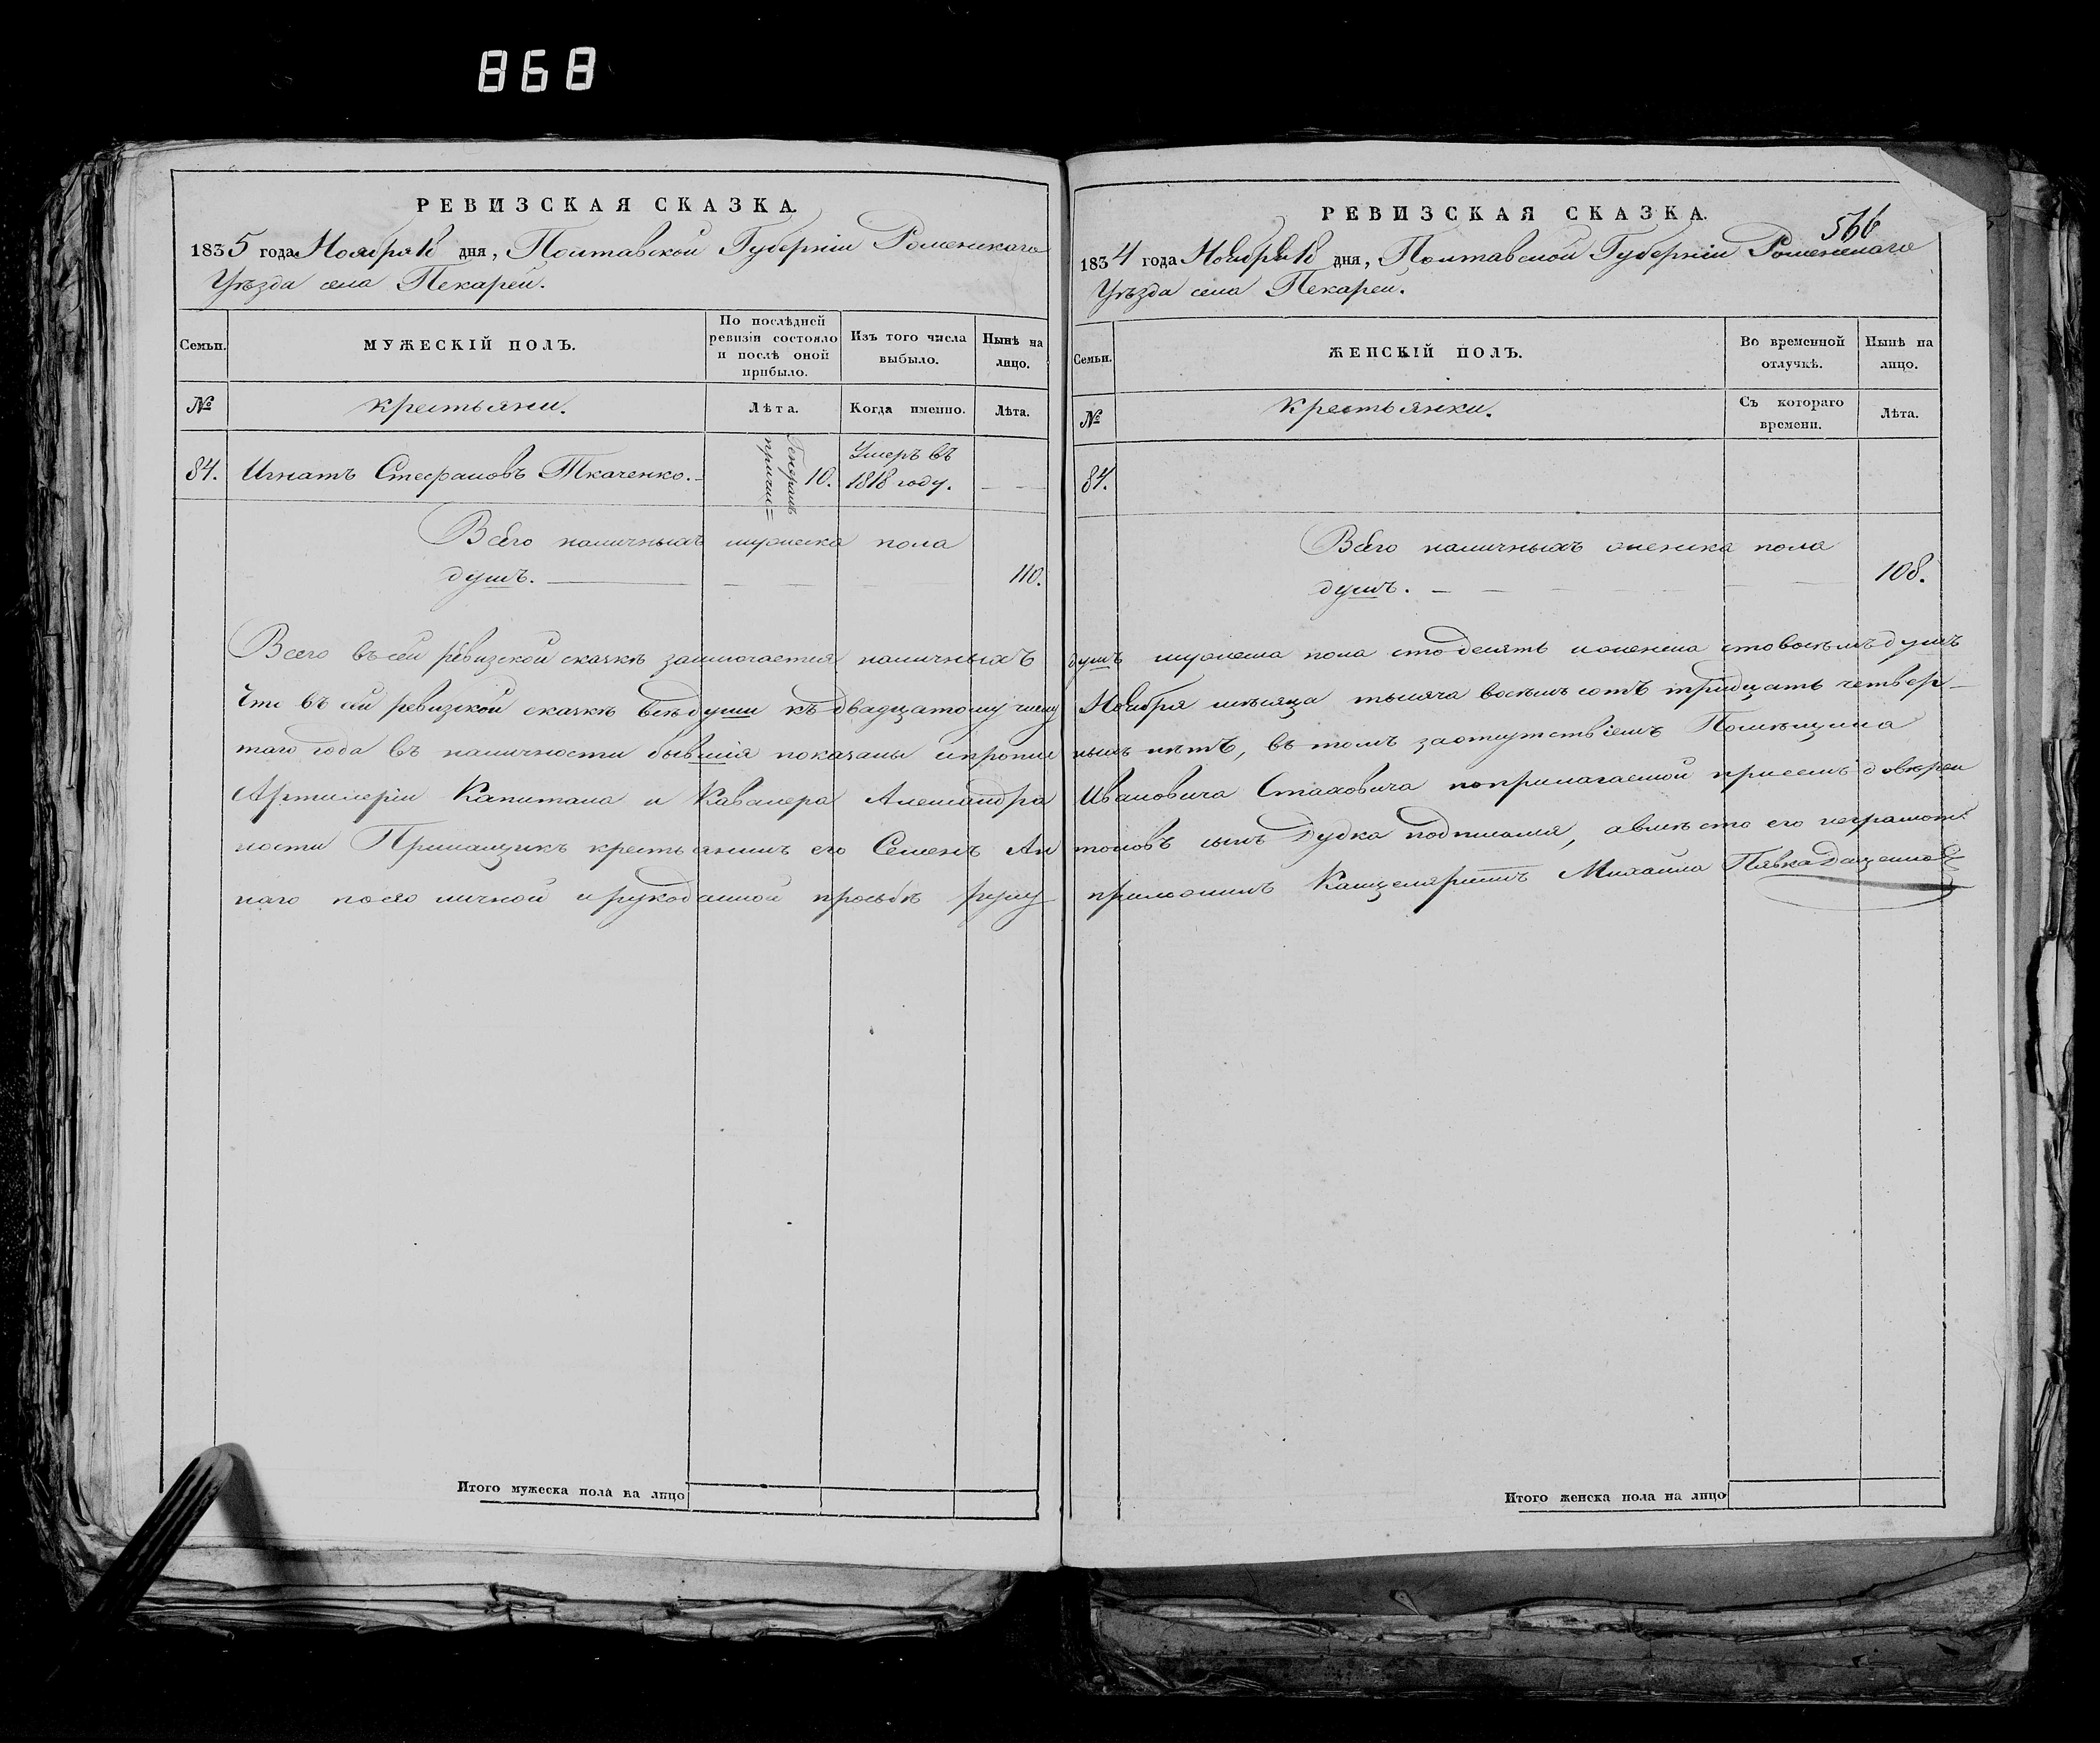 868
РЕВИЗСКАЯ СКАЗКА.
1835 года Ноября 18 дня, Полтавской Губерніи Роменскаго
Уѣзда села Пекарей.
Семьи.
МУЖЕСКІЙ ПОЛЪ.
По послѣдней ревизіи состояло и послѣ оной прибыло.
Изъ того числа выбыло.
Нынѣ на лицо.
№
крестьяни.
Лѣта.
Когда именно.
Лѣта.
84. Игнатъ Стефановъ Ткаченко. 10. Умеръ въ 1818 году.
Всего наличныхъ мужеска пола
душъ. 110.
566
РЕВИЗСКАЯ СКАЗКА.
1834 года Ноября 18 дня, Полтавской Губерніи Роменскаго
Уѣзда села Пекарей.
Семьи.
ЖЕНСКІЙ ПОЛЪ.
Во временной отлучкѣ.
Нынѣ на лицо.
№
крестьянки.
Съ котораго времени.
Лѣта.
84.
Всего наличныхъ женска пола
душъ. 108.
Всего въ сей ревизской сказкѣ заключается наличныхъ душъ мужеска пола сто десять и женска сто восемь душъ
Что въ сей ревизской сказкѣ всѣ души къ двадцатому числу Ноября мѣсяца тысяча восемь сотъ тридцать четвер-
таго года въ наличности бывшія показаны и прописныхъ нѣтъ, въ томъ за отсутствіемъ Помѣщика
Артилеріи Капитана и Кавалера Александра Ивановича Стаховича по прилагаемой присемъ довѣрен
ности Прикащикъ крестьянинъ его Семенъ Антоновъ сынъ Дудка подписался, а вмѣсто его неграмот
наго по его личной и рукоданной прозьбѣ руку приложилъ Канцеляристъ Михайла
Итого мужеска пола на лицо
Итого женска пола на лицо